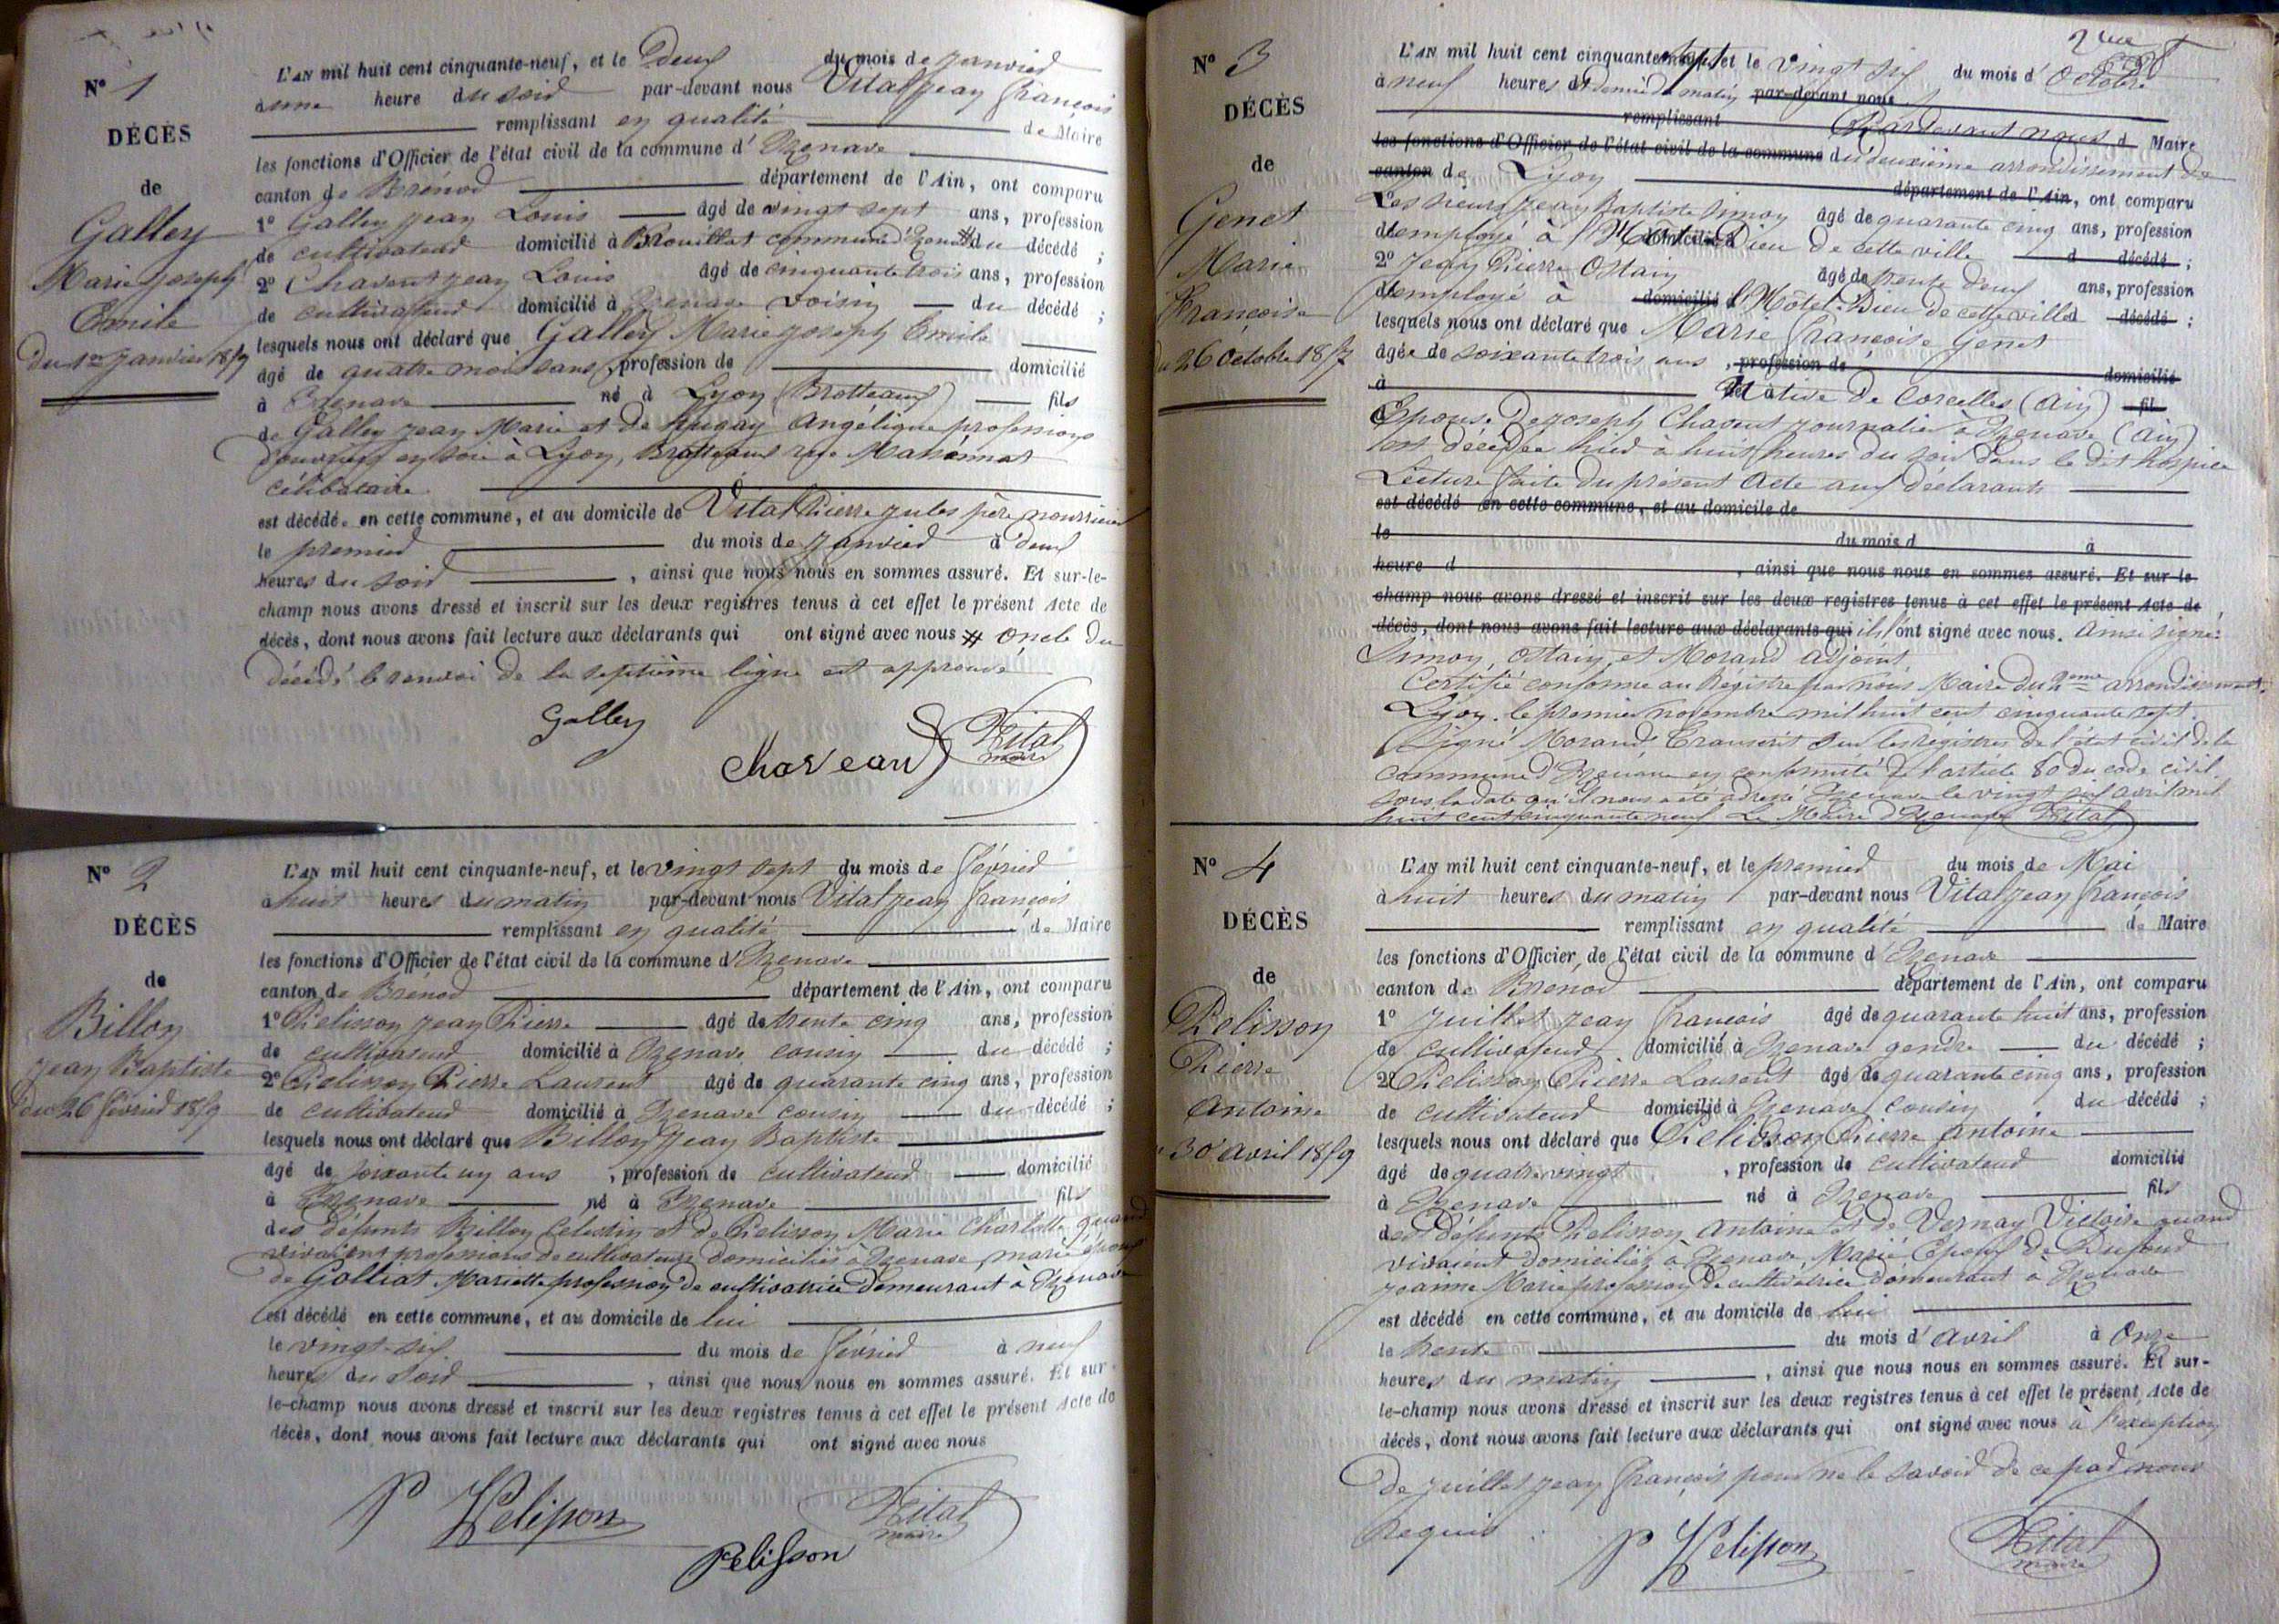 N° 1
DÉCÈS
de
Galley
Marie Joseph
Emile
du 1er janvier 1859
L'AN mil huit cent cinquante-neuf, et le deux du mois de janvier
à une heure du soir par-devant nous Vital jean françois
remplissant en qualité de Maire
les fonctions d'Officier de l'état civil de la commune d'Izenave
canton de Brénod département de l'Ain, ont comparu
1° Galley jean Louis âgé de vingt sept ans, profession
de cultivateur domicilié à Brouillat commune d'Izenave # du décédé ;
2° Chavent jean Louis âgé de cinquante trois ans, profession
de cultivateur domicilié à Izenave voisin du décédé ;
lesquels nous ont déclaré que Galley Marie joseph Emile
âgé de quatre mois sans profession de domicilié
à Izenave né à Lyon (Brotteaux) fils
de Galley jean Marie et de Angélique professions
d'ouvriers en soie à Lyon, Brotteaux rue
célibataire
est décédé en cette commune, et au domicile de Vital Pierre jules père nourricier
le premier du mois de janvier à deux
heures du soir , ainsi que nous nous en sommes assuré. Et sur-le-
champ nous avons dressé et inscrit sur les deux registres tenus à cet effet le présent Acte de
décès, dont nous avons fait lecture aux déclarants qui ont signé avec nous # oncle du
décédé le renvoi de la septième ligne est approuvé
Galley
Vital
maire
N° 2
DÉCÈS
de
Billon
jean Baptiste
du 26 février 1859
L'AN mil huit cent cinquante-neuf, et le vingt sept du mois de février
à huit heures du matin par-devant nous Vital jean françois
remplissant en qualité de Maire
les fonctions d'Officier de l'état civil de la commune d'Izenave
canton de Brénod département de l'Ain, ont comparu
1° Pelisson jean Pierre âgé de trente cinq ans, profession
de cultivateur domicilié à Izenave cousin du décédé ;
2° Pelisson Pierre Laurent âgé de quarante cinq ans, profession
de cultivateur domicilié à Izenave cousin du décédé ;
lesquels nous ont déclaré que Billon jean Baptiste
âgé de soixante un ans , profession de cultivateur domicilié
à Izenave né à Izenave fils
des défunts Billon Celestin et de Pelisson Marie Charlotte quand
vivaient professions de cultivateurs domiciliés à Izenave, marié époux
de Golliat Mariette profession de cultivatrice demeurant à Izenave
est décédé en cette commune, et au domicile de lui
le vingt-six du mois de février à neuf
heures du soir , ainsi que nous nous en sommes assuré. Et sur-
le-champ nous avons dressé et inscrit sur les deux registres tenus à cet effet le présent Acte de
décès, dont nous avons fait lecture aux déclarants qui ont signé avec nous
P Pelisson
Pelisson
Vital
maire
N° 3
DÉCÈS
de
Genet
Marie
Françoise
du 26 octobre 1857
L'AN mil huit cent cinquante sept et le vingt six du mois d'octobre
à neuf heures et demie du matin par-devant nous
remplissant Par devant nous, Maire
les fonctions d'Officier de l'état civil de la commune du deuxième arrondissement de
canton de Lyon département de l'Ain, ont comparu
Les sieurs jean Baptiste Simon âgé de quarante cinq ans, profession
d'employé à l'Hôtel Dieu domicilié de cette ville d décédé ;
2° jean Pierre Ostain âgé de trente deux ans, profession
d'employé à domicilié l'Hôtel-Dieu de cette ville d décédé ;
lesquels nous ont déclaré que Marie françoise Genet
âgée de soixante trois ans , profession de domicilié
à Native de Corcelles (Ain) fil
Epouse de joseph Chavent journalier à Izenave (Ain)
est décédée hier à huit heures du soir dans le dit hospice
Lecture faite du présent acte aux déclarants
est décédé en cette commune, et au domicile de
le du mois d à
heure d , ainsi que nous nous en sommes assuré. Et sur-le-
champ nous avons dressé et inscrit sur les deux registres tenus à cet effet le présent Acte de
décès, dont nous avons fait lecture aux déclarants qui ils l'ont signé avec nous. ainsi signé :
Simon, Ostain, et Morand adjoint
Certifié conforme au Registre par nous Maire du 2eme arrondissement.
Lyon, le premier novembre mil huit cent cinquante sept.
Signé Morand. Transcrit sur les registres de l'état civil de la
commune d'Izenave en conformité de l'article 80 du code civil.
sous la date qu'il nous a été adressé Izenave le vingt six avril mil
huit cent cinquante neuf Le Maire d'Izenave Vital
N° 4
DÉCÈS
de
Pelisson
Pierre
Antoine
30 avril 1859
L'AN mil huit cent cinquante-neuf, et le premier du mois de Mai
à huit heures du matin par-devant nous Vital jean françois
remplissant en qualité de Maire
les fonctions d'Officier de l'état civil de la commune d'Izenave
canton de Brénod département de l'Ain, ont comparu
1° juillet jean françois âgé de quarante huit ans, profession
de cultivateur domicilié à Izenave gendre du décédé ;
2° Pelisson Pierre Laurent âgé de quarante cinq ans, profession
de cultivateur domicilié à Izenave cousin du décédé ;
lesquels nous ont déclaré que Pelisson Pierre antoine
âgé de quatre vingt , profession de cultivateur domicilié
à Izenave né à Izenave fils
des défunts Pelisson antoine et de Vernay Victoire quand
vivaient domiciliés à Izenave, Marié Epoux de Dufour
jeanne Marie profession de cultivatrice demeurant à Izenave
est décédé en cette commune, et au domicile de lui
le trente du mois d'avril à onze
heures du matin , ainsi que nous nous en sommes assuré. Et sur-
le-champ nous avons dressé et inscrit sur les deux registres tenus à cet effet le présent Acte de
décès, dont nous avons fait lecture aux déclarants qui ont signé avec nous à l'exception
de juillet jean françois pour ne le savoir de ce par nous
requis.
P Pelisson
Vital
maire